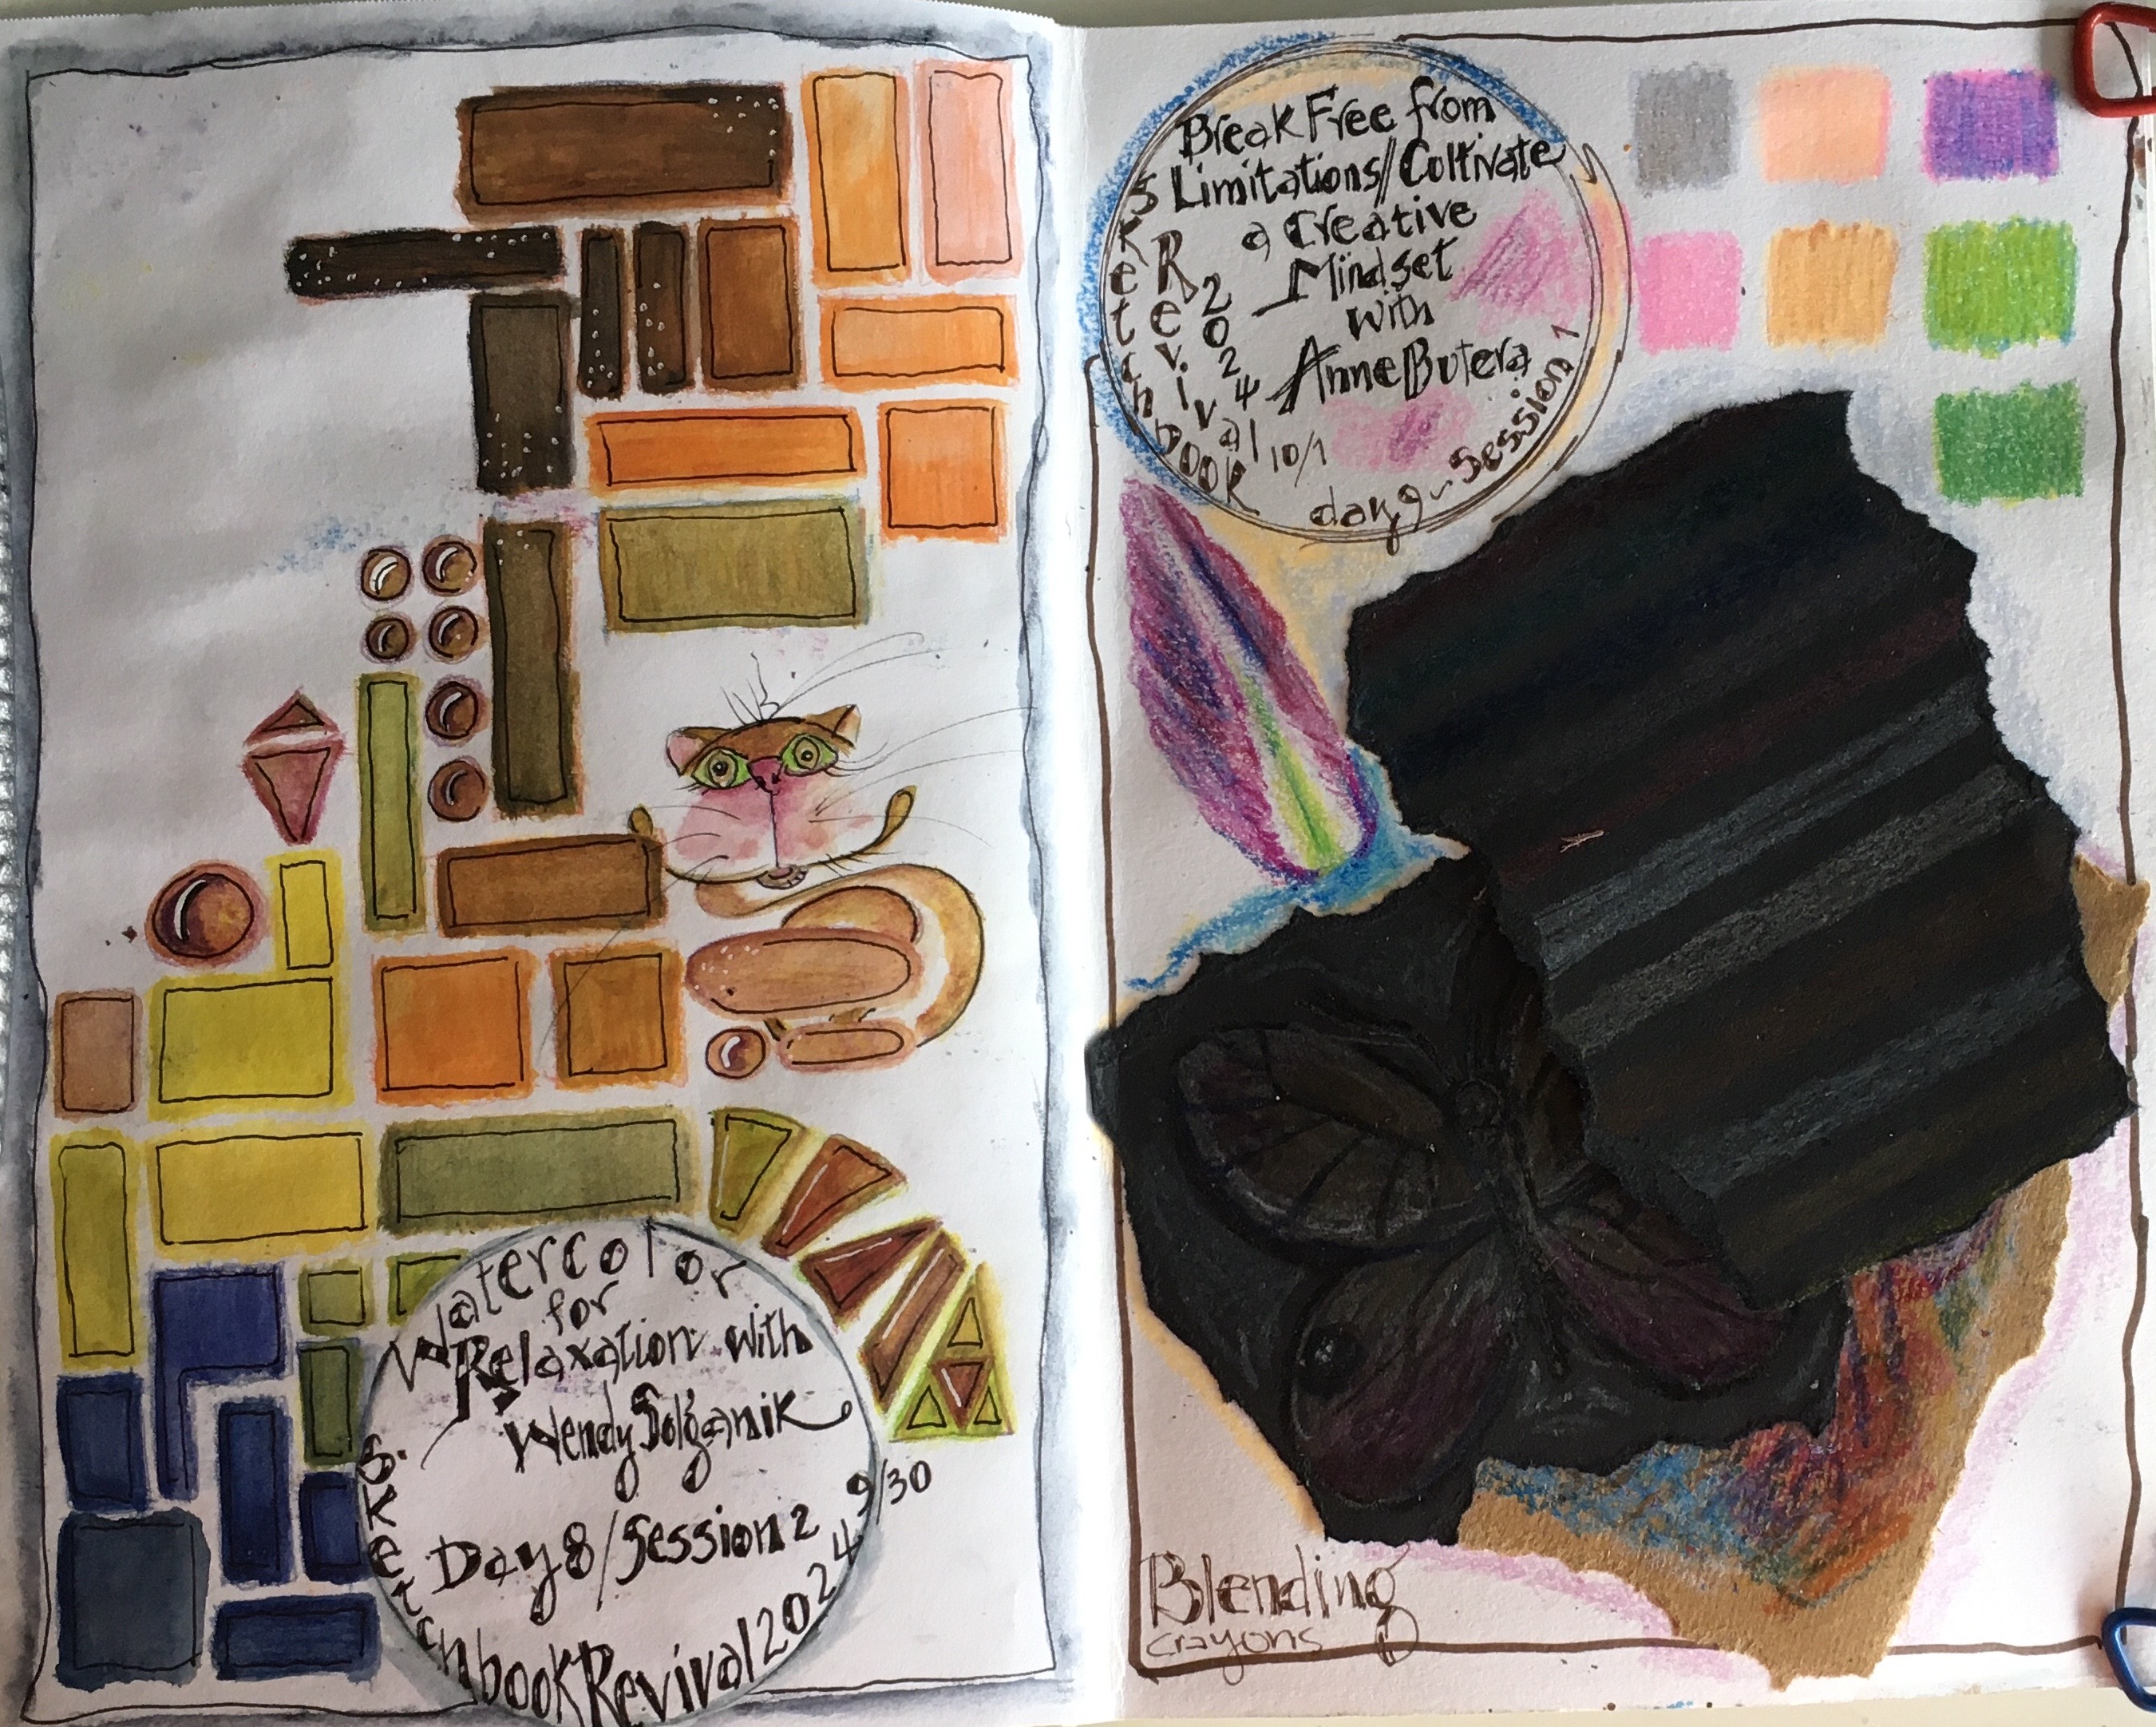 Watercolor
for
Relaxation with
Wendy Solganik
Day 8/Session 2
9/30
Sketchbook Revival 2024
Break Free from
Limitations//Cultivate
a Creative
Mindset
with
Anne Butera
Sketchbook
Revival
2024
10/1
day 9~Session 1
Blending
crayons